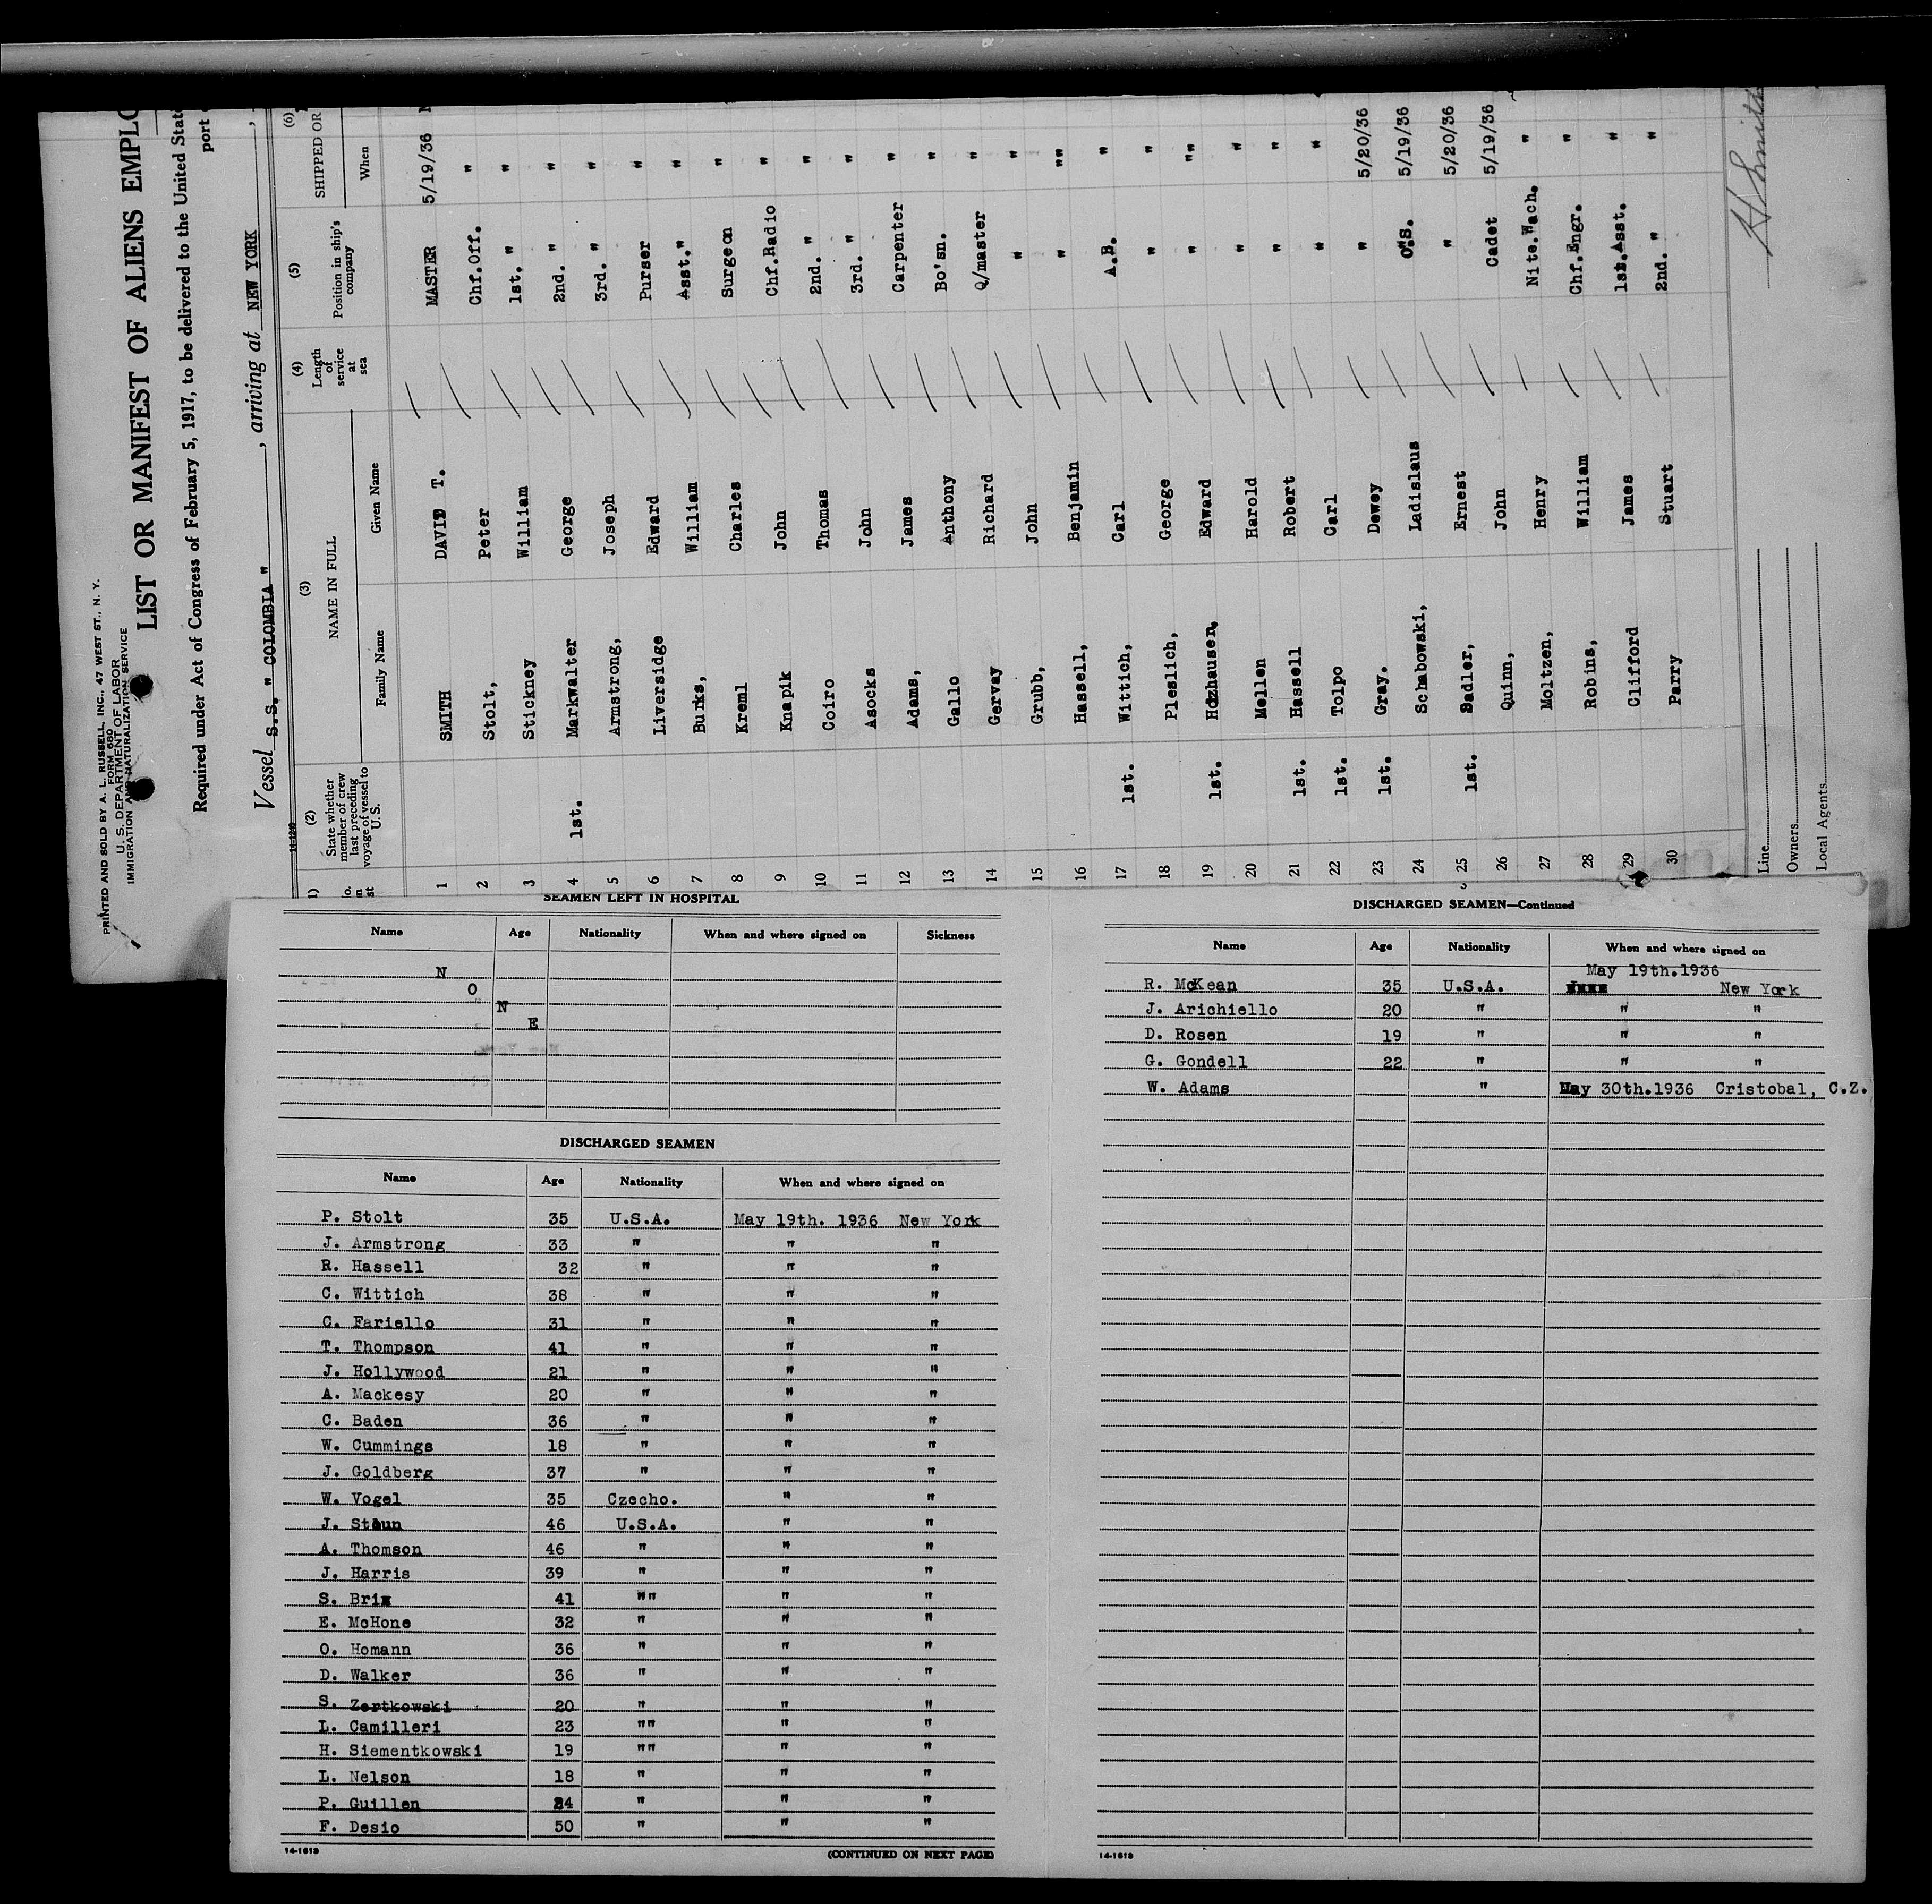 PRINTED AND SOLD BY A. L. RUSSELL, INC., 47 WEST ST., N. Y.
FORM 680
U. S. DEPARTMENT OF LABOR
IMMIGRATION AND NATURALIZATION SERVICE
LIST OR MANIFEST OF ALIENS EMPLO
Required under Act of Congress of February 5, 1917, to be delivered to the United State
port
Vessel S.S. " COLOMBIA ", arriving at NEW YORK,
14-1240
(2) (3) (4) (5) (6)
State whether member of crew last preceding voyage of vessel to U. S. NAME IN FULL Length of service at sea Position in ship's company SHIPPED OR
Family Name Given Name When
1 SMITH DAVID T. MASTER 5/19/36 N
2 Stolt, Peter Chf.Off. "
3 Stickney William 1st. " "
4 1st. Markwalter George 2nd. " "
5 Armstrong, Joseph 3rd. " "
6 Liversidge Edward Purser "
7 Burks, William Asst." "
8 Kreml Charles Surgeon "
9 Knapik John Chf.Radio "
10 Coiro Thomas 2nd. " "
11 Asocks John 3rd. " "
12 Adams, James Carpenter "
13 Gallo Anthony Bo'sn. "
14 Gervay Richard Q/master "
15 Grubb, John " "
16 Hassell, Benjamin " ""
17 1st. Wittich, Carl A.B. "
18 Pleslich, George " "
19 1st. Holzhausen, Edward " ""
20 Mellen Harold " "
21 1st. Hassell Robert " "
22 1st. Tolpo Carl " "
23 1st. Gray. Dewey " 5/20/36
24 Schabowski, Ladislaus O.S. 5/19/36
25 1st. Sadler, Ernest " 5/20/36
26 Quinn, John Cadet 5/19/36
27 Moltzen, Henry Nite.Wach. "
28 Robins, William Chf.Engr. "
29 Clifford James 1st.Asst. "
30 Parry Stuart 2nd. " "
Line
Owners
Local Agents
SEAMEN LEFT IN HOSPITAL
Name Age Nationality When and where signed on Sickness
N
O
N
E
DISCHARGED SEAMEN
Name Age Nationality When and where signed on
P. Stolt 35 U.S.A. May 19th. 1936 New York
J. Armstrong 33 " " "
R. Hassell 32 " " "
C. Wittich 38 " " "
C. Fariello 31 " " "
T. Thompson 41 " " "
J. Hollywood 21 " " "
A. Mackesy 20 " " "
C. Baden 36 " " "
W. Cummings 18 " " "
J. Goldberg 37 " " "
W. Vogel 35 Czecho. " "
J. Staun 46 U.S.A. " "
A. Thomson 46 " " "
J. Harris 39 " " "
S. Brix 41 "" " "
E. McHone 32 " " "
O. Homann 36 " " "
D. Walker 36 " " "
S. Zertkowski 20 " " "
L. Camilleri 23 "" " "
H. Siementkowski 19 "" " "
L. Nelson 18 " " "
P. Guillen 24 " " "
F. Desio 50 " " "
14-1613 (CONTINUED ON NEXT PAGE)
DISCHARGED SEAMEN—Continued
Name Age Nationality When and where signed on
May 19th.1936
R. McKean 35 U.S.A. New York
J. Arichiello 20 " " "
D. Rosen 19 " " "
G. Gondell 22 " " "
W. Adams " May 30th.1936 Cristobal, C.Z.
14-1613